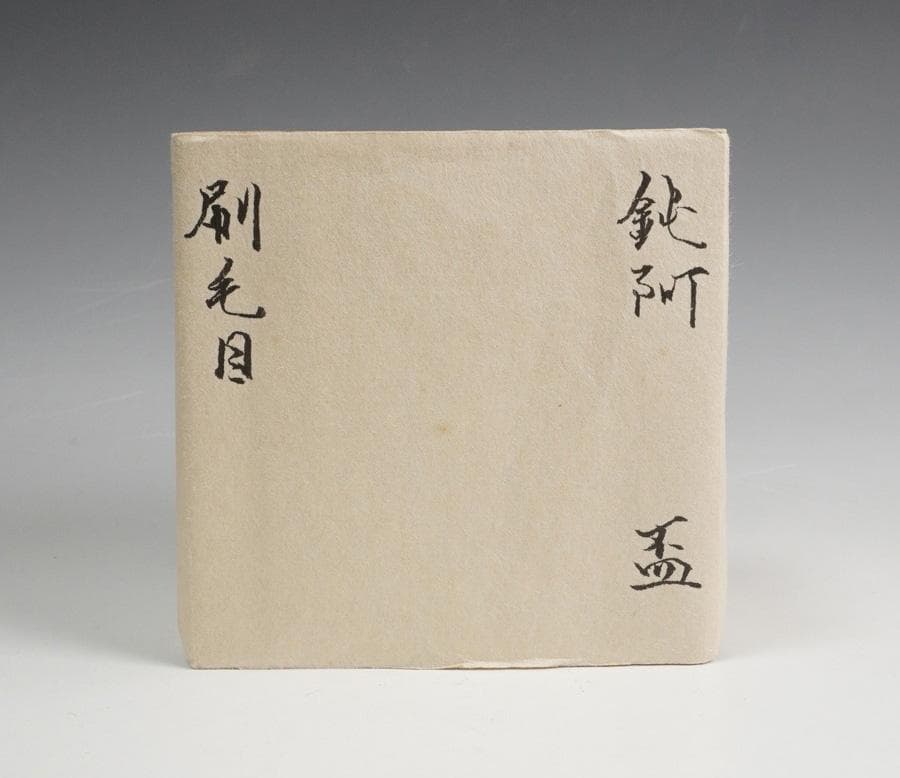 鈍阿
盃
刷毛目